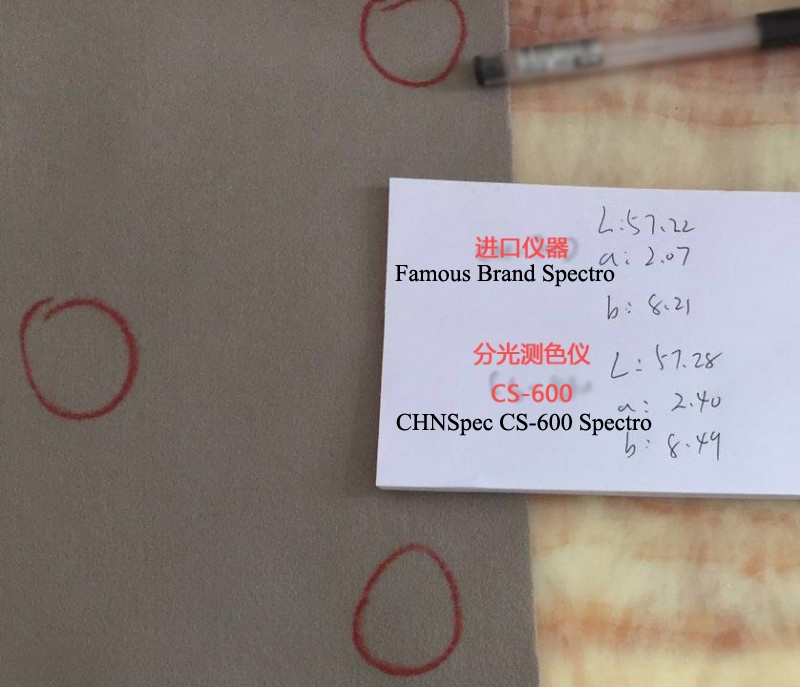 L: 57.22
进口仪器
a: 2.07
Famous Brand Spectro
b: 8.21
分光测色仪
L: 57.28
CS-600
a: 2.40
CHNSpec CS-600 Spectro
b: 8.49